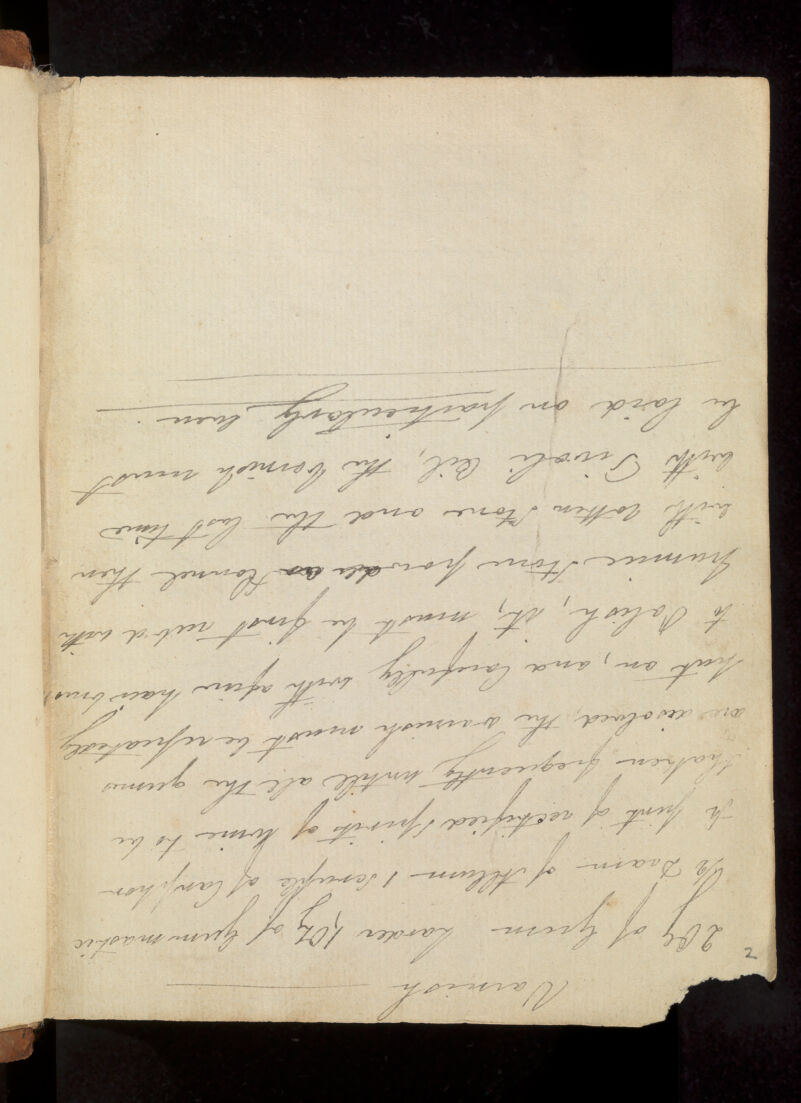 Varnish
2 Oz of Gum Sarder 1 Oz of Gummastic
1/2 Dram of Allum 1 Scruple of Camphor
pint of rectified Spirits of Wine to be
shaken frequently untill all the gums
are desolved, the varnish must be repeatedly
put on, and Carefully with afine hair brus
to Polish, it, must be first rub'd with
Pumice Stone powder flannel then
with rotten Stone and the last time
with Tivoli Oil, the Varnish must
be laid on particularly even
2